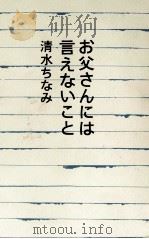 お父さんには
言えないこと
清水ちなみ
mtoou.info